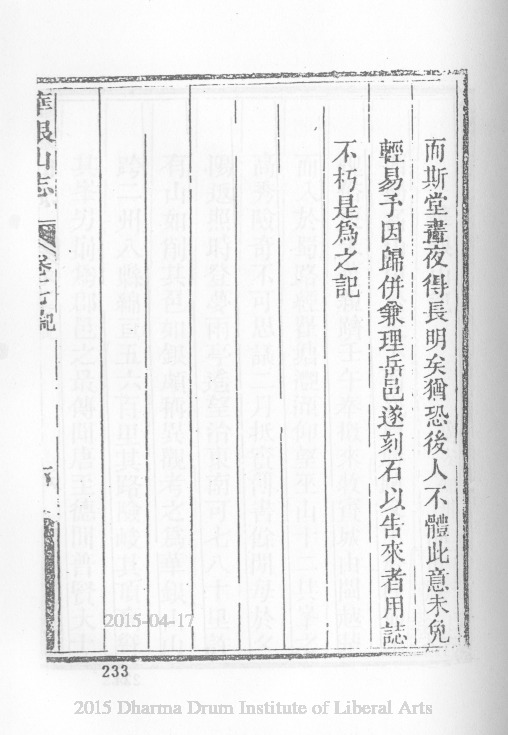 而斯堂晝夜得長明矣猶恐後人不體此意未免
輕易予因歸併兼理岳邑遂刻石以告來者用誌
不朽是爲之記
華銀山志
卷十七 記
2015-04-17
233
2015 Dharma Drum Institute of Liberal Arts